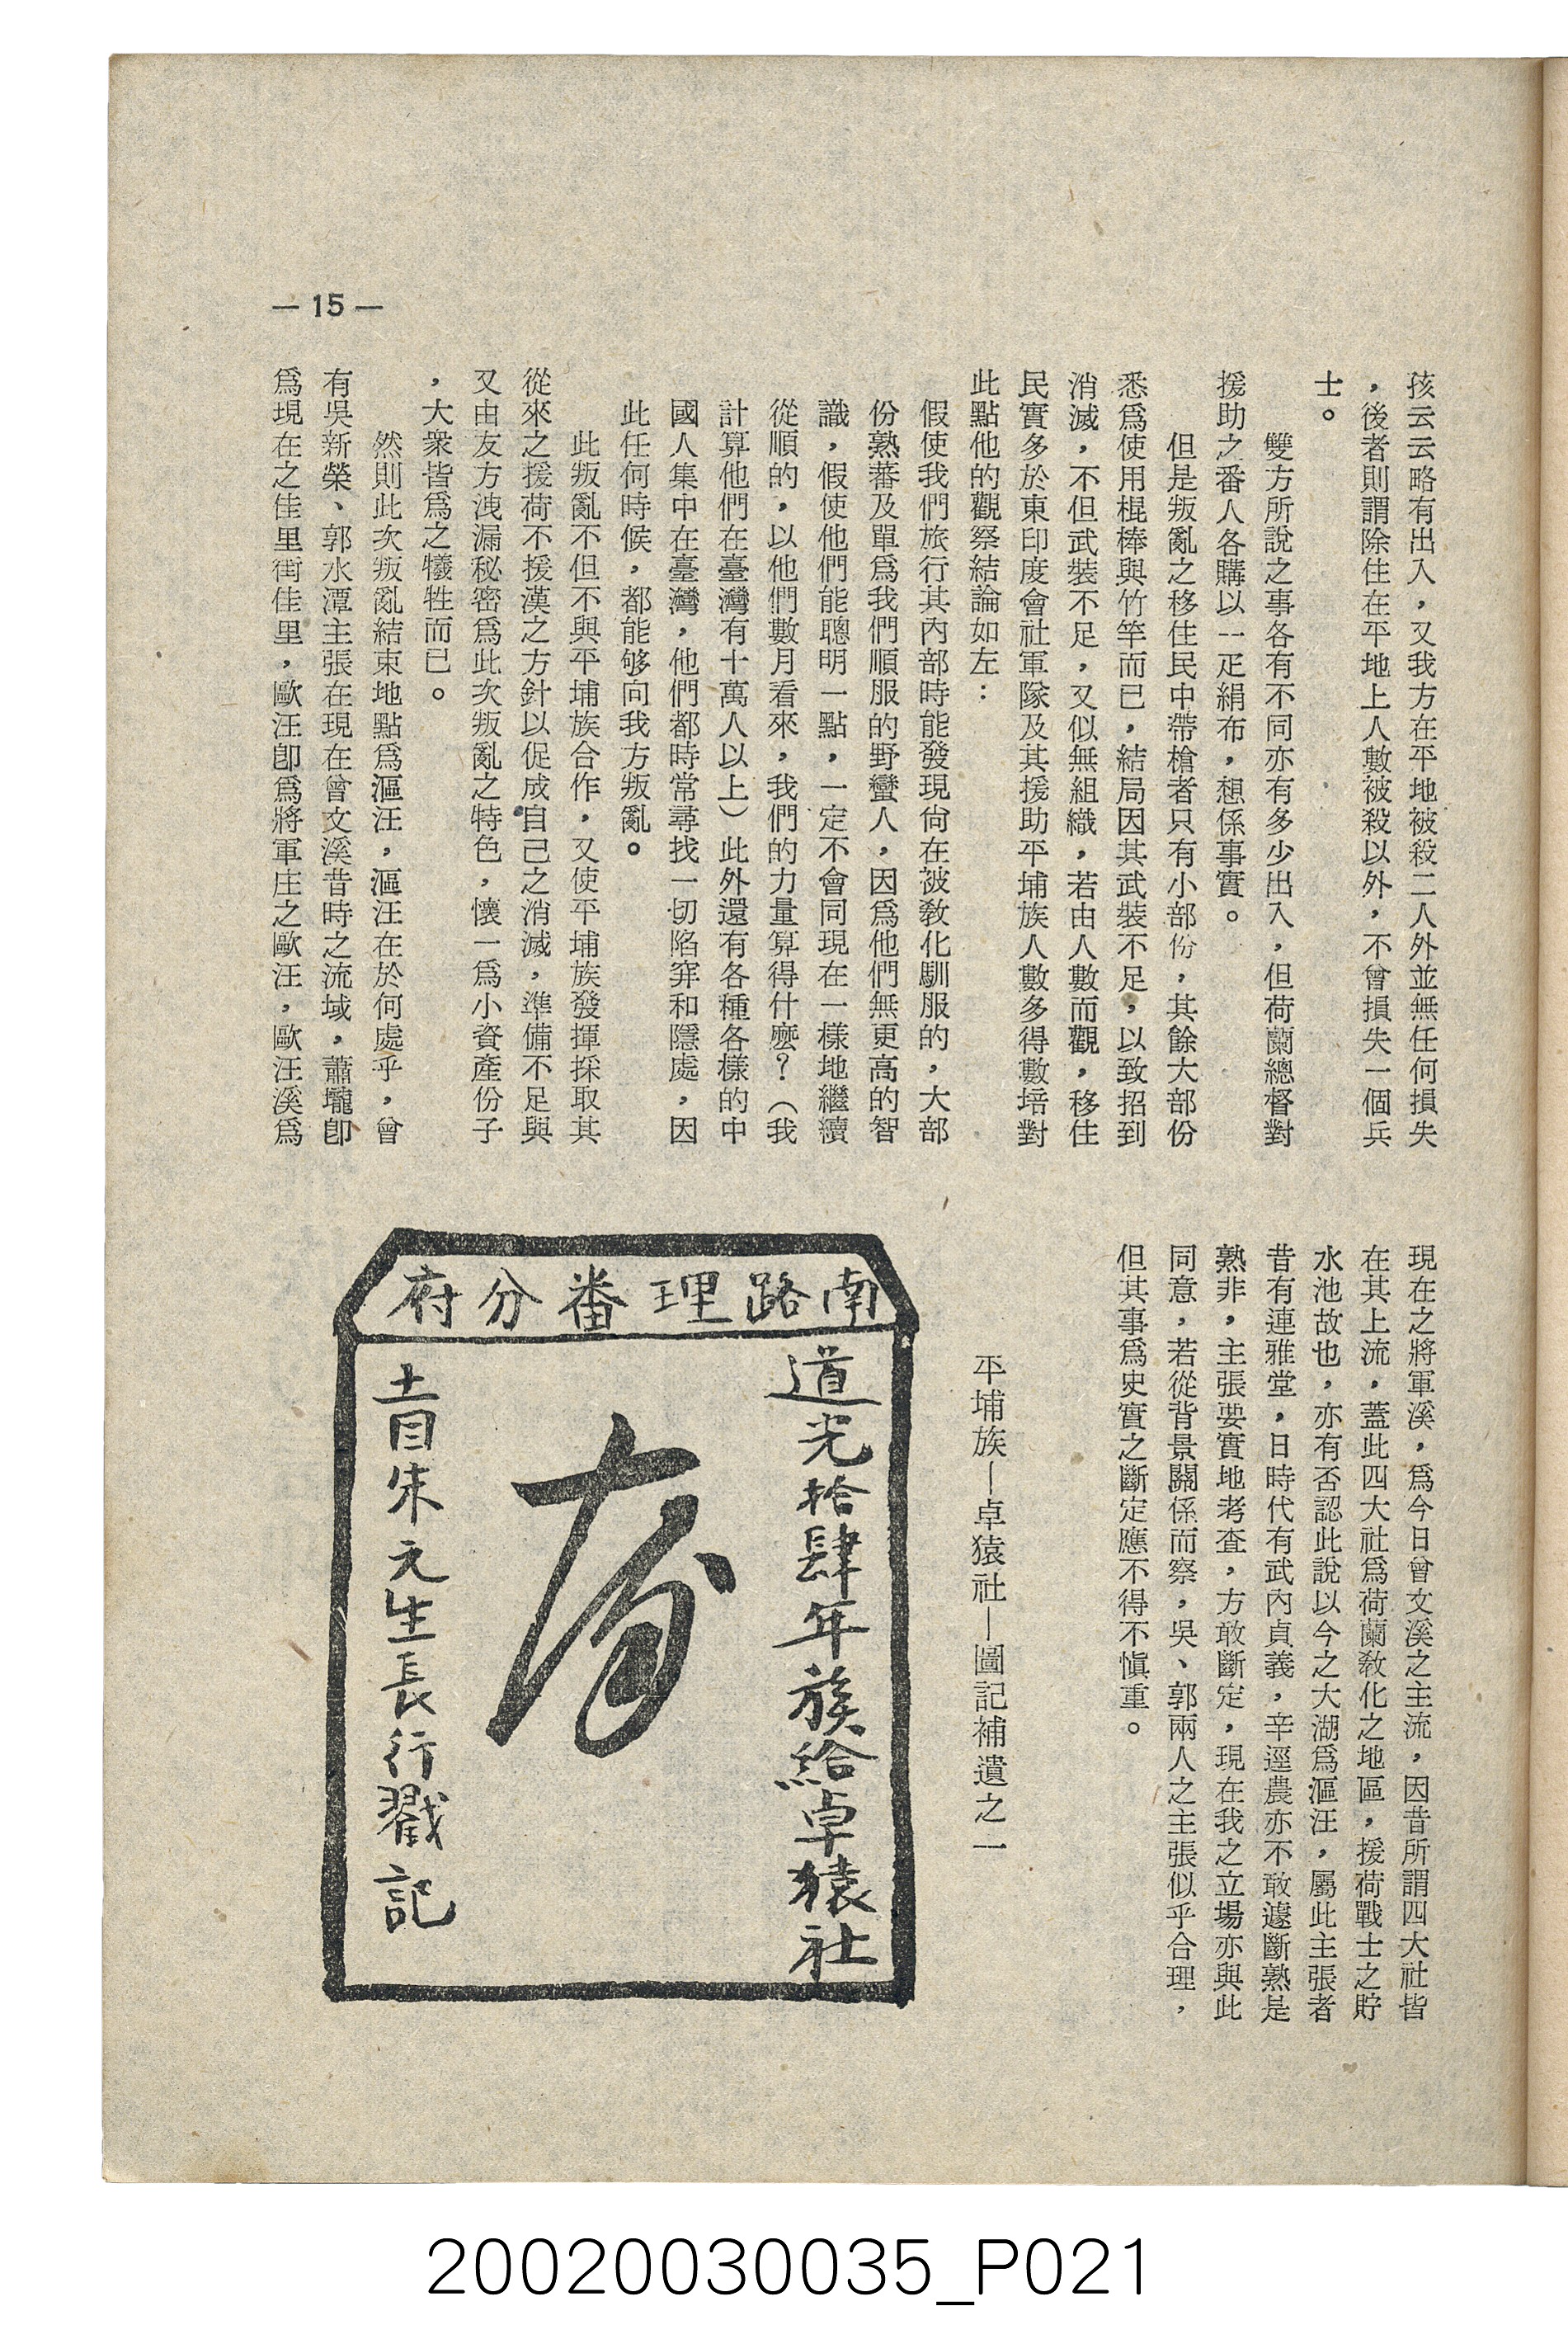 孩云云略有出入，又我方在平地被殺二人外並無任何損失
，後者則謂除住在平地上人數被殺以外，不曾損失一個兵
士。
雙方所說之事各有不同亦有多少出入，但荷蘭總督對
援助之番人各購以一疋絹布，想係事實。
但是叛亂之移住民中帶槍者只有小部份，其餘大部份
悉爲使用棍棒與竹竿而已，結局因其武裝不足，以致招到
消滅，不但武裝不足，又似無組織，若由人數而觀，移住
民實多於東印度會社軍隊及其援助平埔族人數多得數培對
此點他的觀察結論如左：
假使我們旅行其內部時能發現尙在被敎化馴服的，大部
份熟蕃及單爲我們順服的野蠻人，因爲他們無更高的智
識，假使他們能聰明一點，一定不會同現在一樣地繼續
從順的，以他們數月看來，我們的力量算得什麼？（我
計算他們在臺灣有十萬人以上）此外還有各種各樣的中
國人集中在臺灣，他們都時常尋找一切陷穽和隱處，因
此任何時候，都能够向我方叛亂。
此叛亂不但不與平埔族合作，又使平埔族發揮採取其
從來之援荷不援漢之方針以促成自己之消滅，準備不足與
又由友方洩漏秘密爲此次叛亂之特色，懷一爲小資產份子
，大衆皆爲之犧牲而已。
然則此次叛亂結束地點爲漚汪，漚汪在於何處乎，曾
有吳新榮、郭水潭主張在現在曾文溪昔時之流域，蕭壠卽
爲現在之佳里街佳里，歐汪卽爲將軍庄之歐汪，歐汪溪爲
— 15 —
現在之將軍溪，爲今日曾文溪之主流，因昔所謂四大社皆
在其上流，蓋此四大社爲荷蘭敎化之地區，援荷戰士之貯
水池故也，亦有否認此說以今之大湖爲漚汪，屬此主張者
昔有連雅堂，日時代有武內貞義，辛逕農亦不敢遽斷熟是
熟非，主張要實地考查，方敢斷定，現在我之立場亦與此
同意，若從背景關係而察，吳、郭兩人之主張似乎合理，
但其事爲史實之斷定應不得不愼重。
平埔族—卓猿社—圖記補遺之一
南路理番分府
道光拾肆年族給卓猿社
土目朱元生長行戳記
20020030035_P021